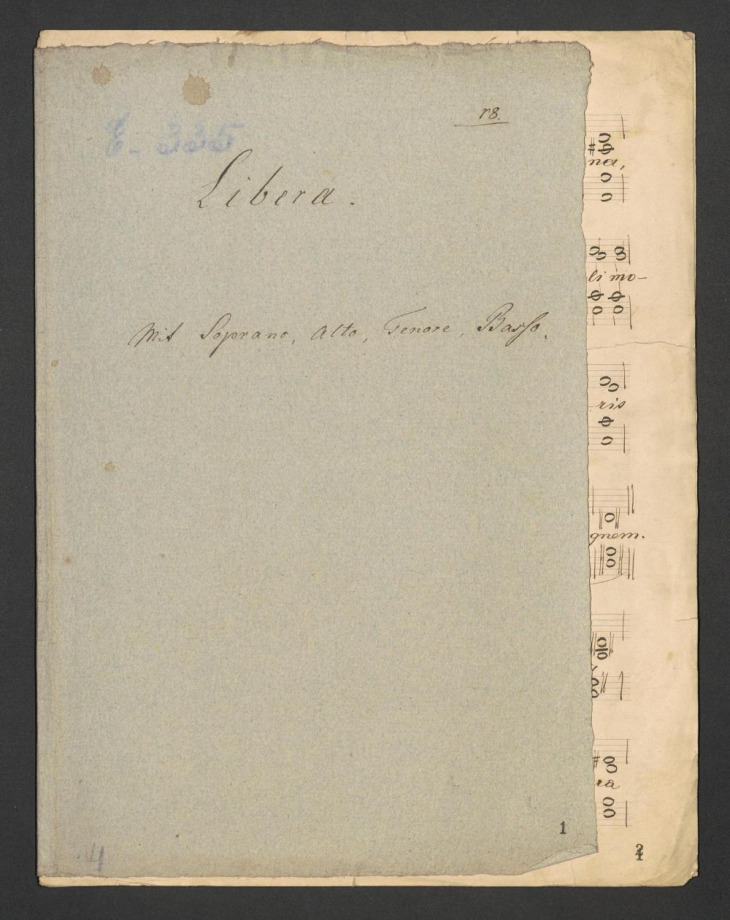 18.
E. 335
Libera.
Mit Soprano, Alto, Tenore, Basso.
na,
li mo-
ris
gnem.
ra
1
4